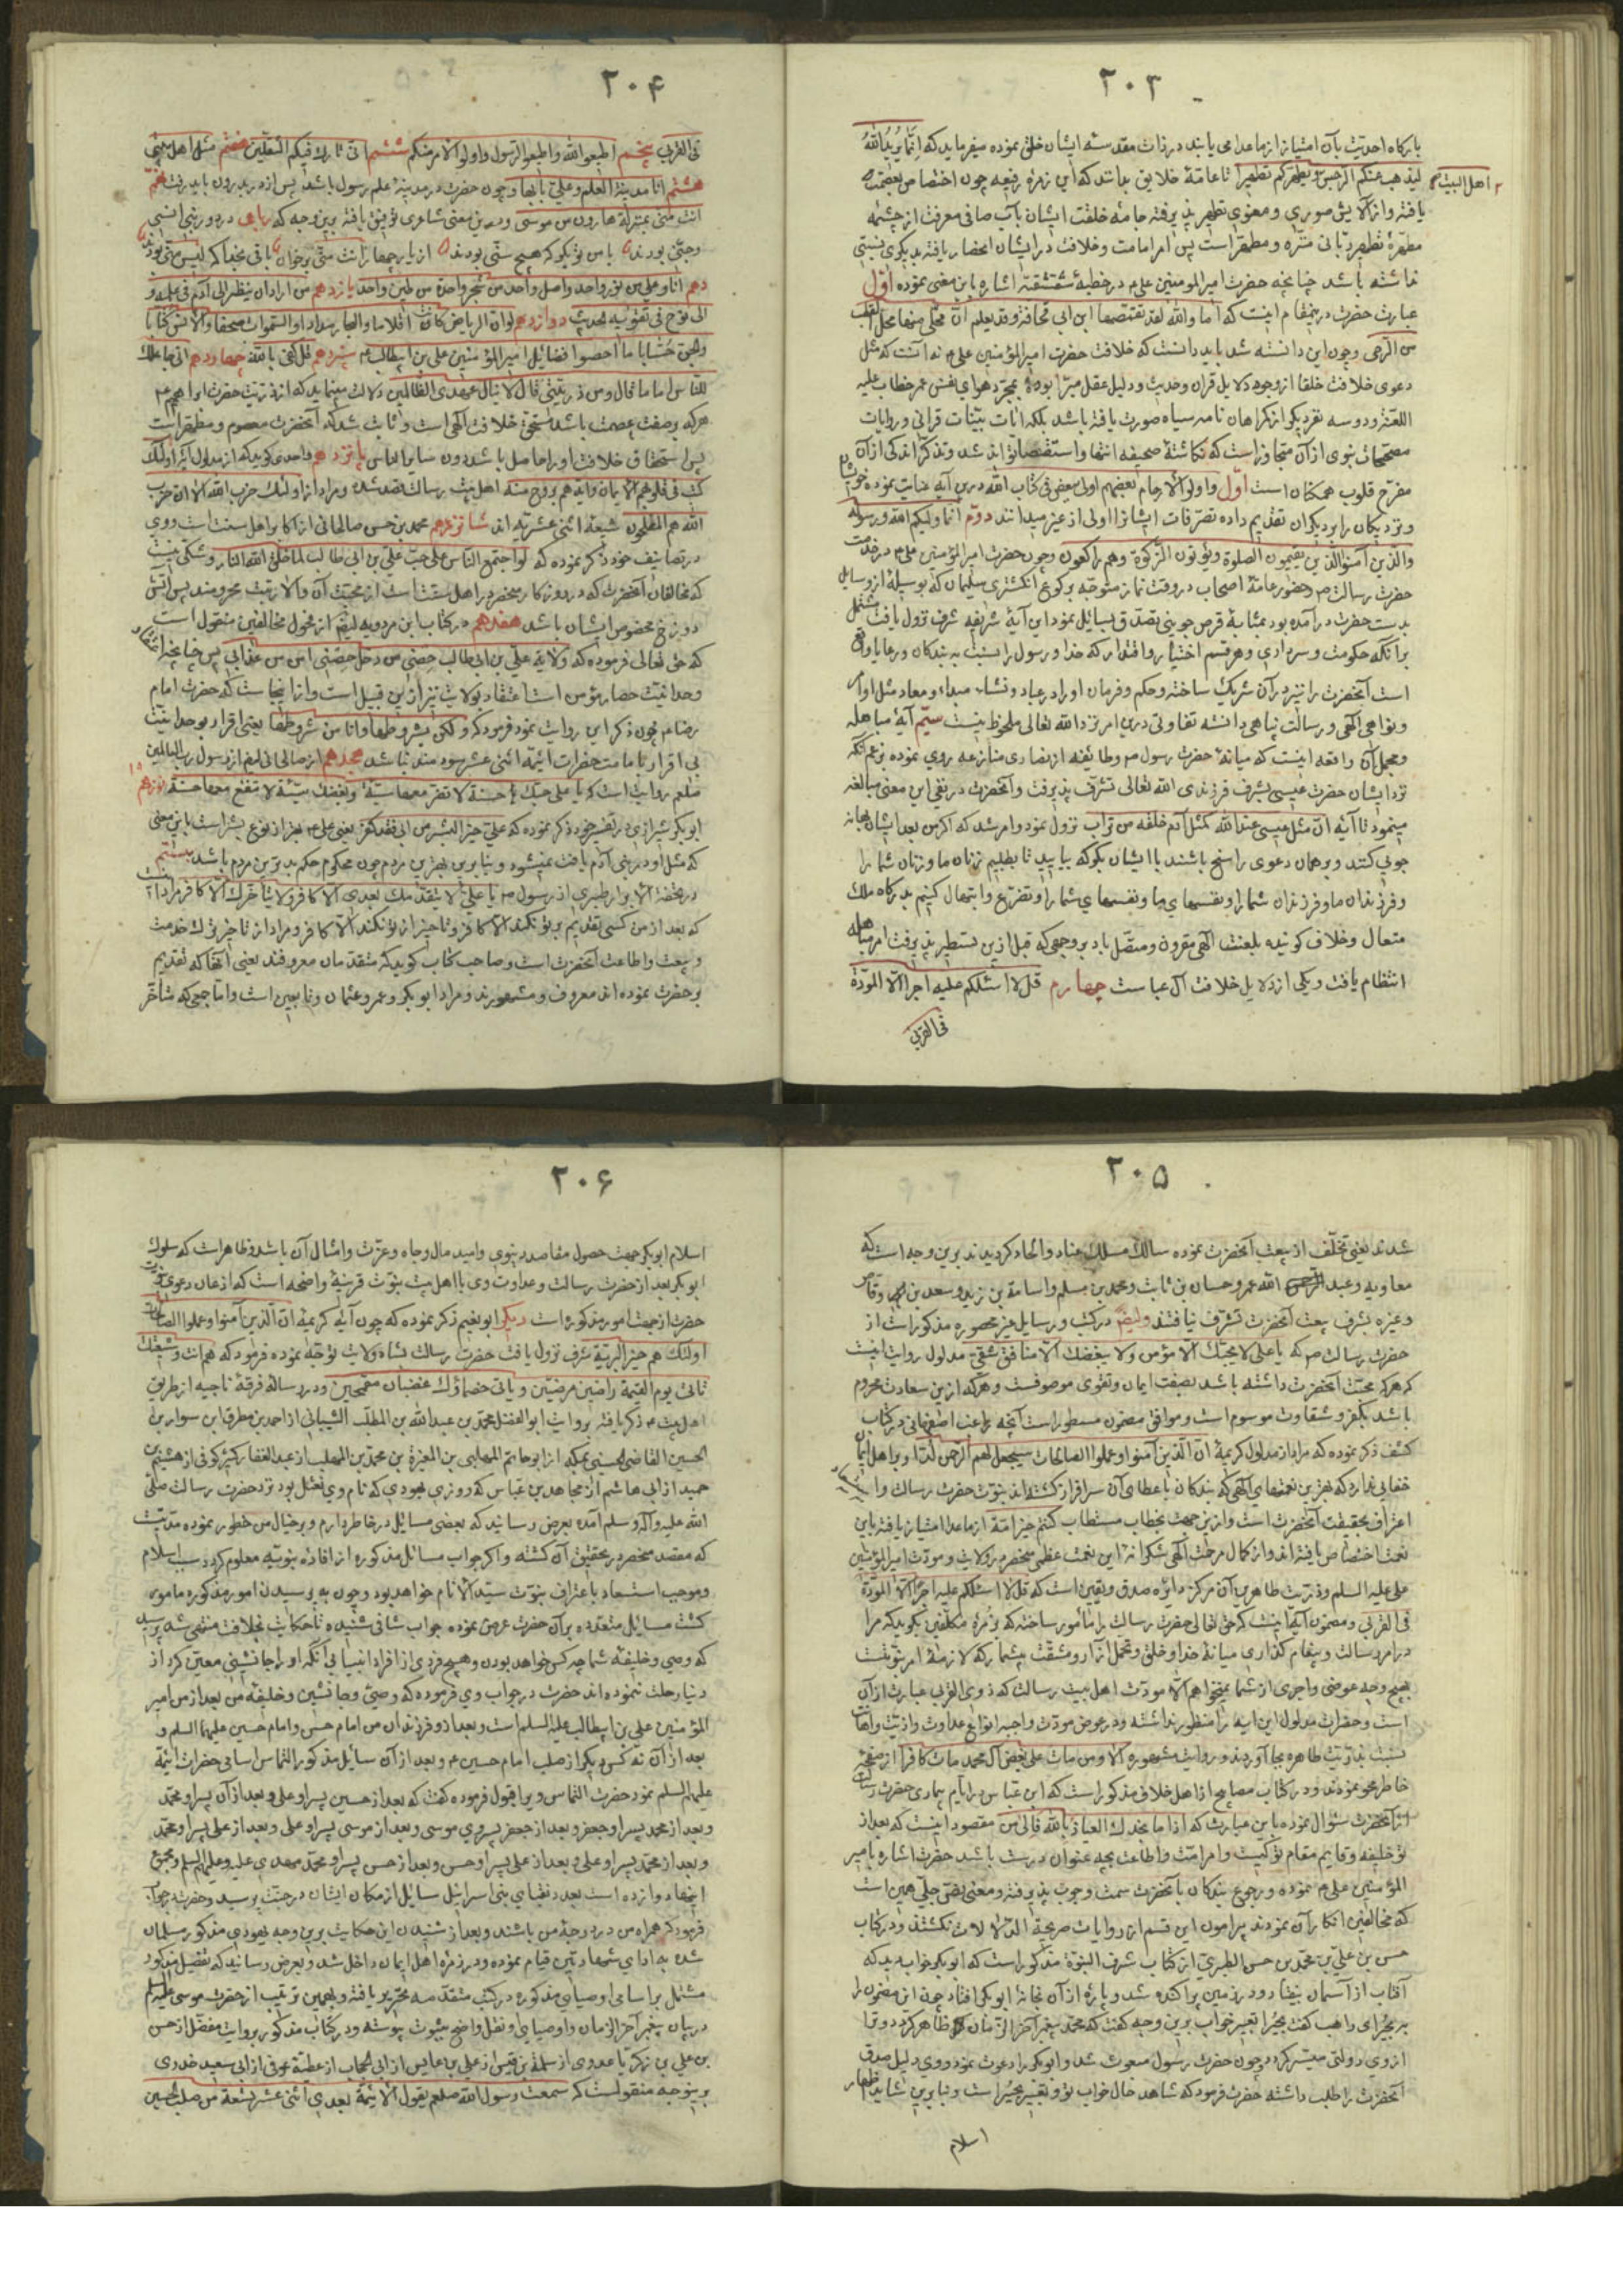 ۲۰۳
بارکاه احدیت بآن امتیاز از ماعدا می یابند در ذات مقدسه ایشان خلق نموده میفرماید که انما یرید الله
لیذهب عنکم الرجس ویطهرکم تطهیرا تا عامّهٔ خلایق بدانند که این زمره رفیعه چون اختصاص بعصمت
اهل البیت
یافته واز آلایش صوری و معنوی تطهیر پذیرفته جامهٔ خلقت ایشان بآب صافی معرفت از چشمه
مطهرهٔ تطهیر ربّانی منزّه ومطهّر است پس امر امامت وخلافت در ایشان انحصار یافته بدیکری نسبتی
نداشته باشد چنانچه حضرت امیر المومنین علی م در خطبهٔ شقشقیّه اشاره باین معنی نموده اوّل
عبارت حضرت درینمقام اینست که اما والله لقد تقمّصها ابن ابی قحافة وقد یعلم ان محلّی منها محل القطب
من الرحی وچون این دانسته شد باید دانست که خلافت حضرت امیر المؤمنین علی م نه آنست که مثل
دعوی خلافت خلفا از وجوه دلایل قران وحدیث ودلیل عقل مبرّا بوده بمجرّد هوای نفس عمر خطاب علیه
اللعنة ودو سه نفر دیکر از کمراهان نامه سیاه صورت یافته باشد بلکه اثبات بیّنات قرانی و روایات
مصححات نبوی از آن متجاوز است که نکاشتهٔ صحیفه انتها واستقصا تواند شد وتذکّر اندکی از آن
مفرّح قلوب همکنان است اوّل واولو الارحام بعضهم اولی ببعض فی کتاب الله درین آیه عنایت نموده خویشان
ونزدیکان را بر دیکران تقدیم داده تصرّفات ایشانرا اولی از غیر میدانند دوّم انما ولیکم الله ورسوله
والذین آمنوا الذین یقیمون الصلوة ویؤتون الزکوة وهم راکعون وچون حضرت امیر المؤمنین علی م در خدمت
حضرت رسالت ص وحضور عامّهٔ اصحاب در وقت نماز متوجّه برکوع انکشتری سلیمان که بوسیلهٔ از وسایل
بدست حضرت در آمده بود بمثابهٔ قرص جوینی تصدّق بسایل نمود این آیهٔ شریفه شرف نزول یافت مشتمل
برآنکه حکومت وسرداری وهر قسم اختیار واقتدار که خدا ورسول را نسبت به بندکان ورعایا واقع
است آنحضرت را نیز در آن شریک ساخته وحکم وفرمان او را در عباد ونشاء مبداء ومعاد مثل اوامر
ونواهی الهی ورسالت پناهی دانسته تفاوتی درین امر نزد الله تعالی ملحوظ نیست سیّم آیهٔ مباهله
ومجمل آن واقعه اینست که میانهٔ حضرت رسول ص وطایفه از نصاری منازعه روی نموده بزعم آنکه
نزد ایشان حضرت عیسی بشرف فرزندی الله تعالی تشرّف پذیرفت وآنحضرت در نفی این معنی مبالغه
مینمود تا آیه انّ مثل عیسی عند الله کمثل آدم خلقه من تراب نزول نمود وامر شد که اکر من بعد ایشان بهانه
جوئی کنند وبر همان دعوی راسخ باشند با ایشان بکو که بیایید تا بطلبیم زنان ما وزنان شما را
وفرزندان ما وفرزندان شما را ونفسهای ما ونفسهای شما را وتضرّع وابتهال کنیم بدرکاه ملک
متعال وخلاف کوینده بلعنت الهی مقرون ومتّصل باد بر وجهی که قبل ازین تسطیر پذیرفت امر مباهله
انتظام یافت ویکی از دلایل خلافت آل عباست چهارم قل لا اسئلکم علیه اجرا الّا المودّة
فی القربی
۲۰۴
فی القربی پنجم اطیعوا الله واطیعوا الرسول واولو الامر منکم ششم انی تارک فیکم الثقلین هفتم مثل اهل بیتی
هشتم انا مدینة العلم وعلیّ بابها وچون حضرت در مدینهٔ علم رسول باشد پس از در بدرون باید رفت نهم
انت منّی بمنزلة هارون من موسی ودرین معنی شاعری توفیق یافته برین وجه که رباعی
وحتّی بودند با من تو بکو که هیچ سنّی بودند از یار چهار انت منّی بر خوان باقی بخدا که لیس منّی بودند
دهم انا وعلی من نور واحد واصل واحد من شجر واحدة من طین واحد یازدهم من اراد ان ینظر الی آدم فی علمه و
الی نوح فی تقوئیه الحدیث دوازدهم لو ان الریاض کانت اقلاما والبحار مدادا والسّموات صحفا والانس کتابا
والجنّ حسّابا ما احصوا فضائل امیر المؤمنین علی بن ابیطالب م سیزدهم قل کفی بالله چهاردهم انی جاعلک
للناس اماما قال ومن ذریّتی قال لا ینال عهدی الظالمین دلالت مینماید که از ذریّت حضرت ابراهیم م
هرکه بوصف عصمت باشد مستحقّ خلافت الهی است وثابت شد که آنحضرت معصوم ومطهّر است
پس استحقاق خلافت او را حاصل باشد دون سایر الناس پانزدهم واحدی کوید که از مدلول آیه اولئک
کتب فی قلوبهم الایمان وایّدهم بروح منه اهل بیت رسالت قصد شده ومراد از اولئک حزب الله الا ان حزب
الله هم المفلحون شیعهٔ اثنی عشریّه اند شانزدهم محمد بن حسن صالحانی از اکابر اهل سنّت است وی
در تصانیف خود ذکر نموده که لو اجتمع الناس علی حبّ علیّ بن ابی طالب لما خلق الله النار وشکّی نیست
که مخالفان آنحضرت که در روزکار منحصر در اهل سنّت است از محبّت آن والا رتبت محرومند پس آتش
دوزخ مخصوص ایشان باشد هفدهم در کتاب ابن مردویه ایضا از فحول مخالفین منقول است
که حق تعالی فرموده که ولایة علی بن ابی طالب حصنی من دخل حصنی امن من عذابی پس چنانچه اعتقاد
وحدانیّت حصار مؤمن است اعتقاد بولایت نیز ازین قبیل است واز اینجاست که حضرت امام
رضا م چون ذکر این روایت نمود فرمود که ولکن بشروطها وانا من شروطها یعنی اقرار بوحدانیّت
بی اقرار بامامت حضرات ائمّهٔ اثنی عشر سودمند نباشد هجدهم از صالحانی ایضا از رسول رب العالمین
صلعم روایت است که یا علی حبّک حسنة لا تضر معها سیّئة وبغضک سیّئة لا تنفع معها حسنة نوزدهم
ابوبکر شیرازی در تفسیر خود ذکر نموده که علیّ خیر البشر من ابی فقد کفر یعنی علی م بهتر از نوع بشر است باین معنی
که مثل او در بنی آدم یافت نمیشود وبنا برین بهترین مردم چون محکوم حکم بدترین مردم باشد بیستم
در تحفة الابرار طبری از رسول ص یا علیّ لا یتقدّمک بعدی الّا کافر ولا یتاخّر عنک الّا کافر مراد آنست
که بعد از من کسی تقدیم بر تو نکند الّا کافر وتاخیر از تو نکند الّا کافر ومراد از تاخیر ترک خدمت
وبیعت واطاعت آنحضرت است وصاحب کتاب کوید که متقدّمان معروفند یعنی آنها که تقدیم
بر حضرت نموده اند معروف ومشهورند ومراد ابوبکر وعمر وعثمان وتابعین است وامّا جمعی که متأخّر
۲۰۵
شدند یعنی تخلّف از بیعت آنحضرت نموده سالک مسلک عناد والحاد کردیدند برین وجه است که
معاویه وعبد الله عمر وحسان بن ثابت ومحمد بن مسلم واسامة بن زید وسعد بن وقاص
وغیره بشرف بیعت آنحضرت تشرّف نیافتند وایضا در کتب ورسایل غیر محصوره مذکور است از
حضرت رسالت ص که یا علی لا یحبّک الّا مؤمن ولا یبغضک الّا منافق شقیّ مدلول روایت اینست
که هرکه محبّت آنحضرت داشته باشد بصفت ایمان وتقوی موصوفست وهرکه ازین سعادت محروم
باشد بکفر وشقاوت موسوم است وموافق مضمون مسطور است آنچه راغب اصفهانی در کتاب
کشف ذکر نموده که مراد از مدلول کریمهٔ انّ الّذین آمنوا وعملوا الصالحات سیجعل لهم الرحمن ودّا وبر اهل ایمان
خفائی ندارد که بهترین نعمتهای الهی که بندکان باعطای آن سرافراز کشته اند نبوّت حضرت رسالت و
اعتراف بحقیقت آنحضرت است وازین جهت بخطاب مستطاب کنتم خیر امّة از ماعدا امتیاز یافته باین
نعمت اختصاص یافته اند واز کمال مرحمت الهی شکرانهٔ این نعمت عظمی منحصر در ولایت ومودّت امیر المؤمنین
علی علیه السلام وذرّیت طاهرین آن مرکز دایرهٔ صدق ویقین است که قل لا اسئلکم علیه اجرا الّا المودّة
فی القربی ومضمون آیه اینست که حق تعالی حضرت رسالت را مأمور ساخته که بزمرهٔ مکلّفین بکوید که مرا
در امر رسالت وپیغام کذاری میانهٔ خدا وخلق وتحمّل آزار ومشقّت بیشمار که لازمهٔ امر نبوّتست
بهیچ وجه عوضی واجری از شما نمیخواهم الّا مودّت اهل بیت رسالت که ذوی القربی عبارت از آن
است وحضرات مدلول این آیه را منظور نداشته ودر عوض مودّت واجبه انواع عداوت واذیّت واهانت
نسبت بذرّیت طاهره بجا آوردند وروایت مشهوره الا ومن مات علی بغض آل محمد مات کافرا از صفحهٔ
خاطر محو نمودند ودر کتاب مصابیح از اهل خلاف مذکور است که ابن عبّاس در ایام بیماری حضرت رسالت
از آنحضرت سؤال نموده باین عبارت که اذا ما نجدک العیاذ بالله فالی من مقصود اینست که بعد از
تو خلیفه وقایم مقام تو کیست وامر امّت واطاعت بچه عنوان درست باشد حضرت اشاره بامیر
المؤمنین علی م نموده ورجوع بندکان بآنحضرت سمت وجوب پذیرفته ومعنی نصّ جلیّ همین است
که مخالفین انکار آن نمودند پیرامون این قسم از روایات صریحة الدّلالات نکشتند ودر کتاب
حسن بن علی بن محمد بن حسن الطبری از کتاب شرف النبوّة مذکور است که ابوبکر خواب دید که
آفتاب از آسمان بیفتاد ودر زمین پراکنده شد وپارهٔ از آن بخانهٔ ابوبکر افتاد چون این مضمون را
بر بحیرای راهب کفت بحیرا تعبیر خواب برین وجه کفت که محمد پیغمبر آخر الزمان ظاهر کردد وترا
از وی دولتی میسّر کردد وچون حضرت رسول مبعوث شد وابوبکر را دعوت نمود ووی دلیل صدق
آنحضرت را طلب داشته حضرت فرمود که شاهد حال خواب تو وتعبیر بحیراست وبنابرین شاید اظهار
اسلام
۲۰۶
اسلام ابوبکر جهت حصول مقاصد دنیوی وامید مال وجاه وعزّت وامثال آن باشد وظاهر است که سلوک
ابوبکر بعد از حضرت رسالت وعداوت وی با اهل بیت نبوّت قرینهٔ واضحه است که اذعان دعوی نبوّت
حضرت از جهت امور مذکوره است دیکر ابو نعیم ذکر نموده که چون آیهٔ کریمهٔ ان الّذین آمنوا وعملوا الصالحات
اولئک هم خیر البریّة شرف نزول یافت حضرت رسالت بشاه ولایت توجّه نموده فرمود که هم انت وشیعتک
تأتی یوم القیمة راضین مرضیّین ویأتی خصماؤک غضبان مقمحین ودر رسالهٔ فرقهٔ ناجیه از طریق
اهل بیت م ذکر یافته بروایت ابو الفضل محمّد بن عبد الله بن المطلّب الشیبانی از احمد بن مطرق ابن سوار بن
الحسین القاضی الحسینی بمکه از ابو حاتم المهلبی بن المغیرة بن محمّد بن المهلب از عبد الغفار کثیر کوفی از هشیم بن
حمید از ابی هاشم از مجاهد بن عباس که روزی یهودی که نام وی نعثل بود نزد حضرت رسالت صلّی
الله علیه وآله وسلم آمده بعرض رسانید که بعضی مسائل در خاطر دارم وبر خیال من خطور نموده مدّتیست
که مقصد منحصر در تحقیق آن کشته واکر جواب مسائل مذکوره از افادهٔ نبویّه معلوم کردد سبب اسلام
وموجب استسعاد باعتراف نبوّت سیّد الانام خواهد بود وچون به پرسیدن امور مذکوره مامور
کشت مسائل متعدّده بر آن حضرت عرض نموده جواب شافی شنیده تا حکایت بخلافت منتهی شد پرسید
که وصی وخلیفهٔ شما چه کس خواهد بودن وهیچ فردی از افراد انبیا بی آنکه او را جانشینی معیّن کرد از
دنیا رحلت ننموده اند حضرت در جواب وی فرموده که وصیّ وجانشین وخلیفهٔ من بعد از من امیر
المؤمنین علی بن ابیطالب علیه السلم است وبعد از و فرزندان من امام حسن وامام حسین علیهما السلم و
بعد از آن نه کس دیکر از صلب امام حسین م وبعد از آن سائل مذکور التماس اسامی حضرات ائمّهٔ
علیهم السلم نمود حضرت التماس ویرا قبول فرموده کفت که بعد از حسین پسر او علی وبعد از آن پسر او محمّد
وبعد از محمد پسر او جعفر وبعد از جعفر پسر وی موسی وبعد از موسی پسر او علی وبعد از علی پسر او محمّد
وبعد از محمّد پسر او علی وبعد از علی پسر او حسن وبعد از حسن پسر او محمّد مهدی علیه وعلیهم السلم ومجموع
اینها دوازده است بعدد نقبای بنی اسرائیل سائل از مکان ایشان در جنّت پرسید وحضرت در جواب
فرمود که همراه من در درجهٔ من باشند وبعد از شنیدن این حکایت برین وجه یهودی مذکور مسلمان
شده به ادای شهادتین قیام نموده ودر زمرهٔ اهل ایمان داخل شد وبعرض رسانید که تفصیل مذکور
مشتمل بر اسامی اوصیای مذکوره در کتب متقدّمه تحریر یافته وبهمین ترتیب از حضرت موسی علیه السلم
در بیان پیغمبر آخر الزمان واوصیای او نقل واضح بثبوت پیوسته ودر کتاب مذکور بروایت مفضّل از حسن
بن علی بن زکریّا عدوی از سلمة بن قیس از علی بن عابس از ابی الحجاف از عطیّة عوفی از ابی سعید خدری
برینوجه منقولست که سمعت رسول الله صلعم یقول الائمّة بعدی اثنی عشر تسعة من صلب الحسین